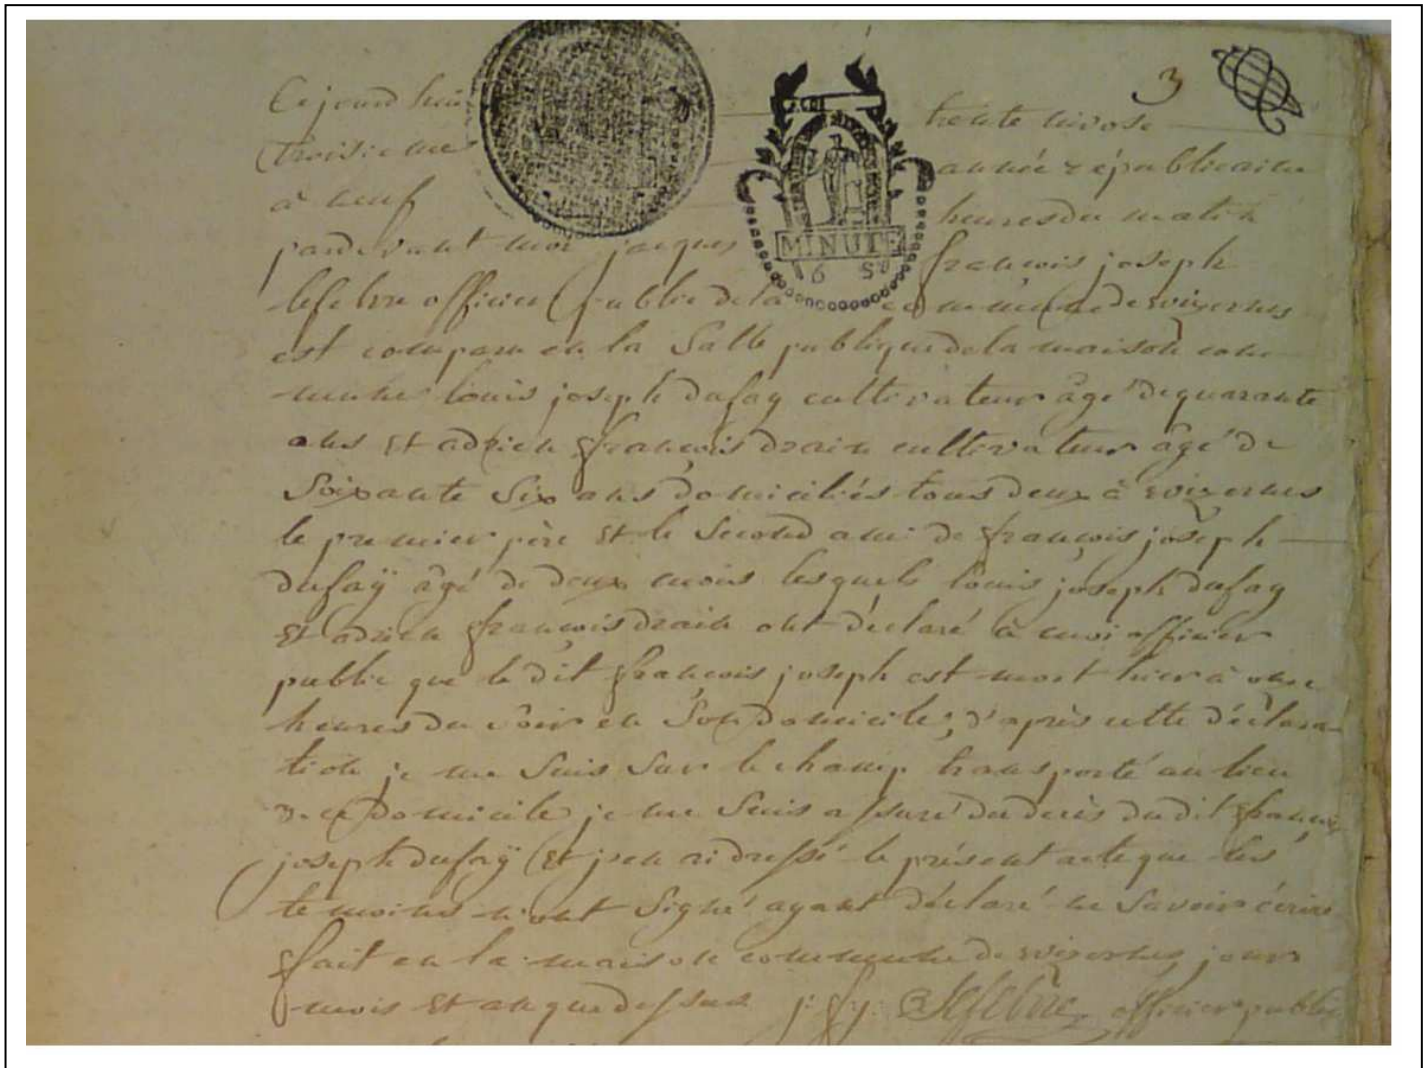 3
Cejourdhui trente nivose
troisieme année républicaine
à neuf heures du matin
pardevant moi jacques françois joseph
lefebvre officier public de la commune de wizernes
est comparu en la Salle publique de la maison com
mune louis joseph dufay cultivateur âgé de quarante
ans et adrien françois drain cultivateur âgé de
Soixante Six ans domiciliés tous deux à wizernes
le premier père et le Second ami de françois joseph
dufaÿ âgé de deux mois lesquels louis joseph dufay
et adrien françois drain ont déclaré à moi officier
public que le dit françois joseph est mort hier à onze
heures du Soir en Son domicile; d'après cette déclara
tion je me Suis Sur le champ transporté au lieu
de ce domicile, je me Suis assuré du decès dudit françois
joseph dufaÿ et j'en ai dressé le présent acte que les
temoins n'ont Signé ayant déclaré ne Savoir écrire
fait en la maison commune de wizernes jour
mois et an que dessus j: f: j: Lefebvre officier public
MINUTE